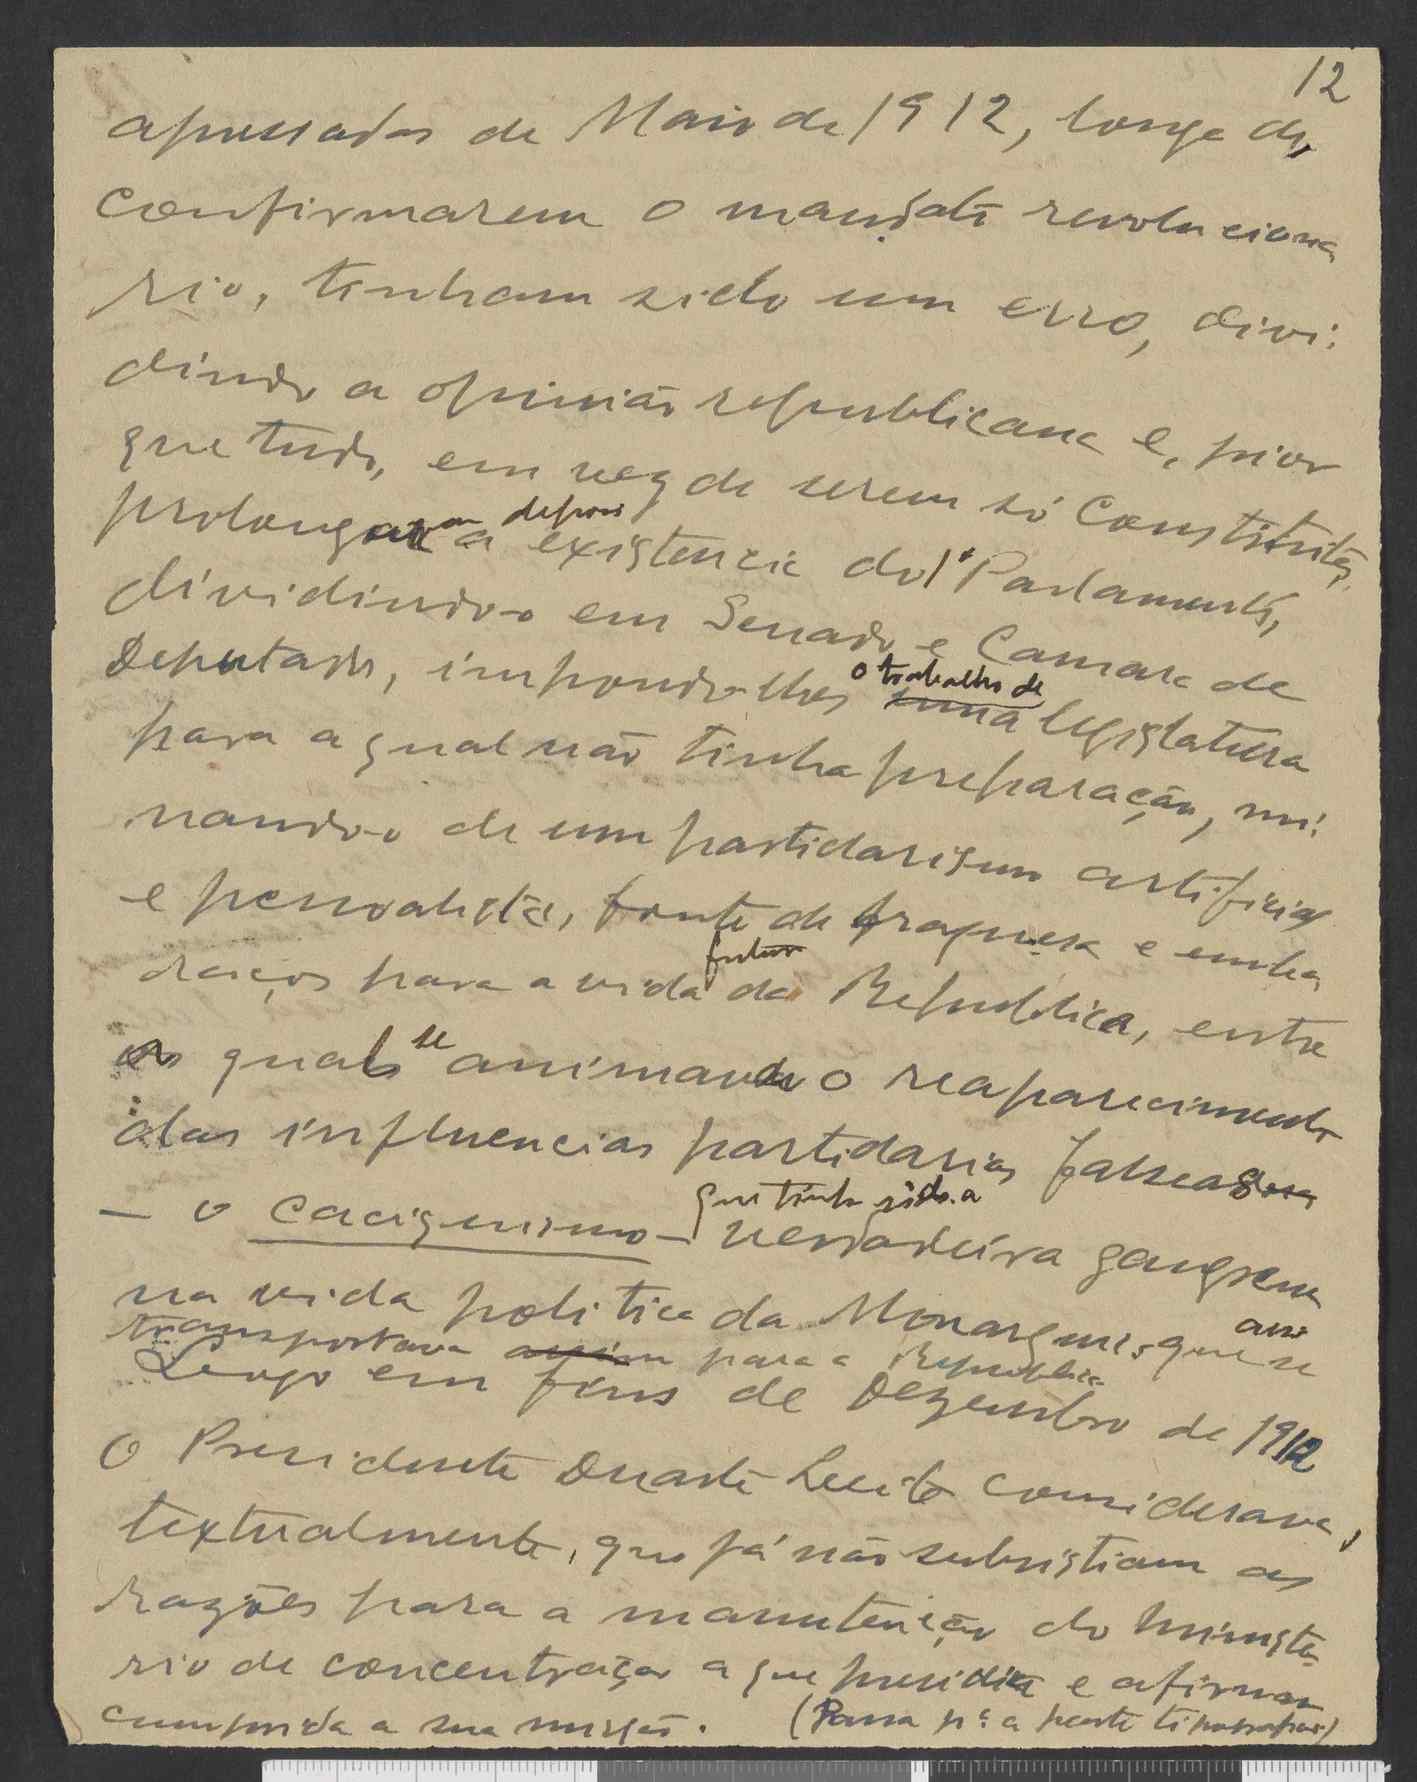 12
apressadas de Maio de 1912, longe de
confirmarem o mandato revoluciona
rio, tinham sido um erro, divi-
dindo a opinião republicana e, pior
que tudo, em vez de serem só Constituites,
prolongavam depois a existencia do 1º Parlamento,
dividindo-o em Senado e Camara de
Deputados, impondo-lhes o trabalho de uma legislatura
para a qual não tinha preparação, mi-
nando-o de um partidarismo artificial
e personalista, fonte de fraqueza e emba
raços para a vida futura da Republica, entre
os quais se animava o reaparecimento
das influencias partidarias falseas
— o caciquismo — que tinha sido a verdadeira gangrena
na vida politica da Monarquia, que assi se
transportava assim para a Republica
Logo em fins de Dezembro de 1912
o Presidente Duarte Leite considerava,
textualmente, que já não subsistiam as
razões para a manutenção do ministe-
rio de concentração a que presidia e afirmava
cumprida a sua missão. (Passa pª a parte